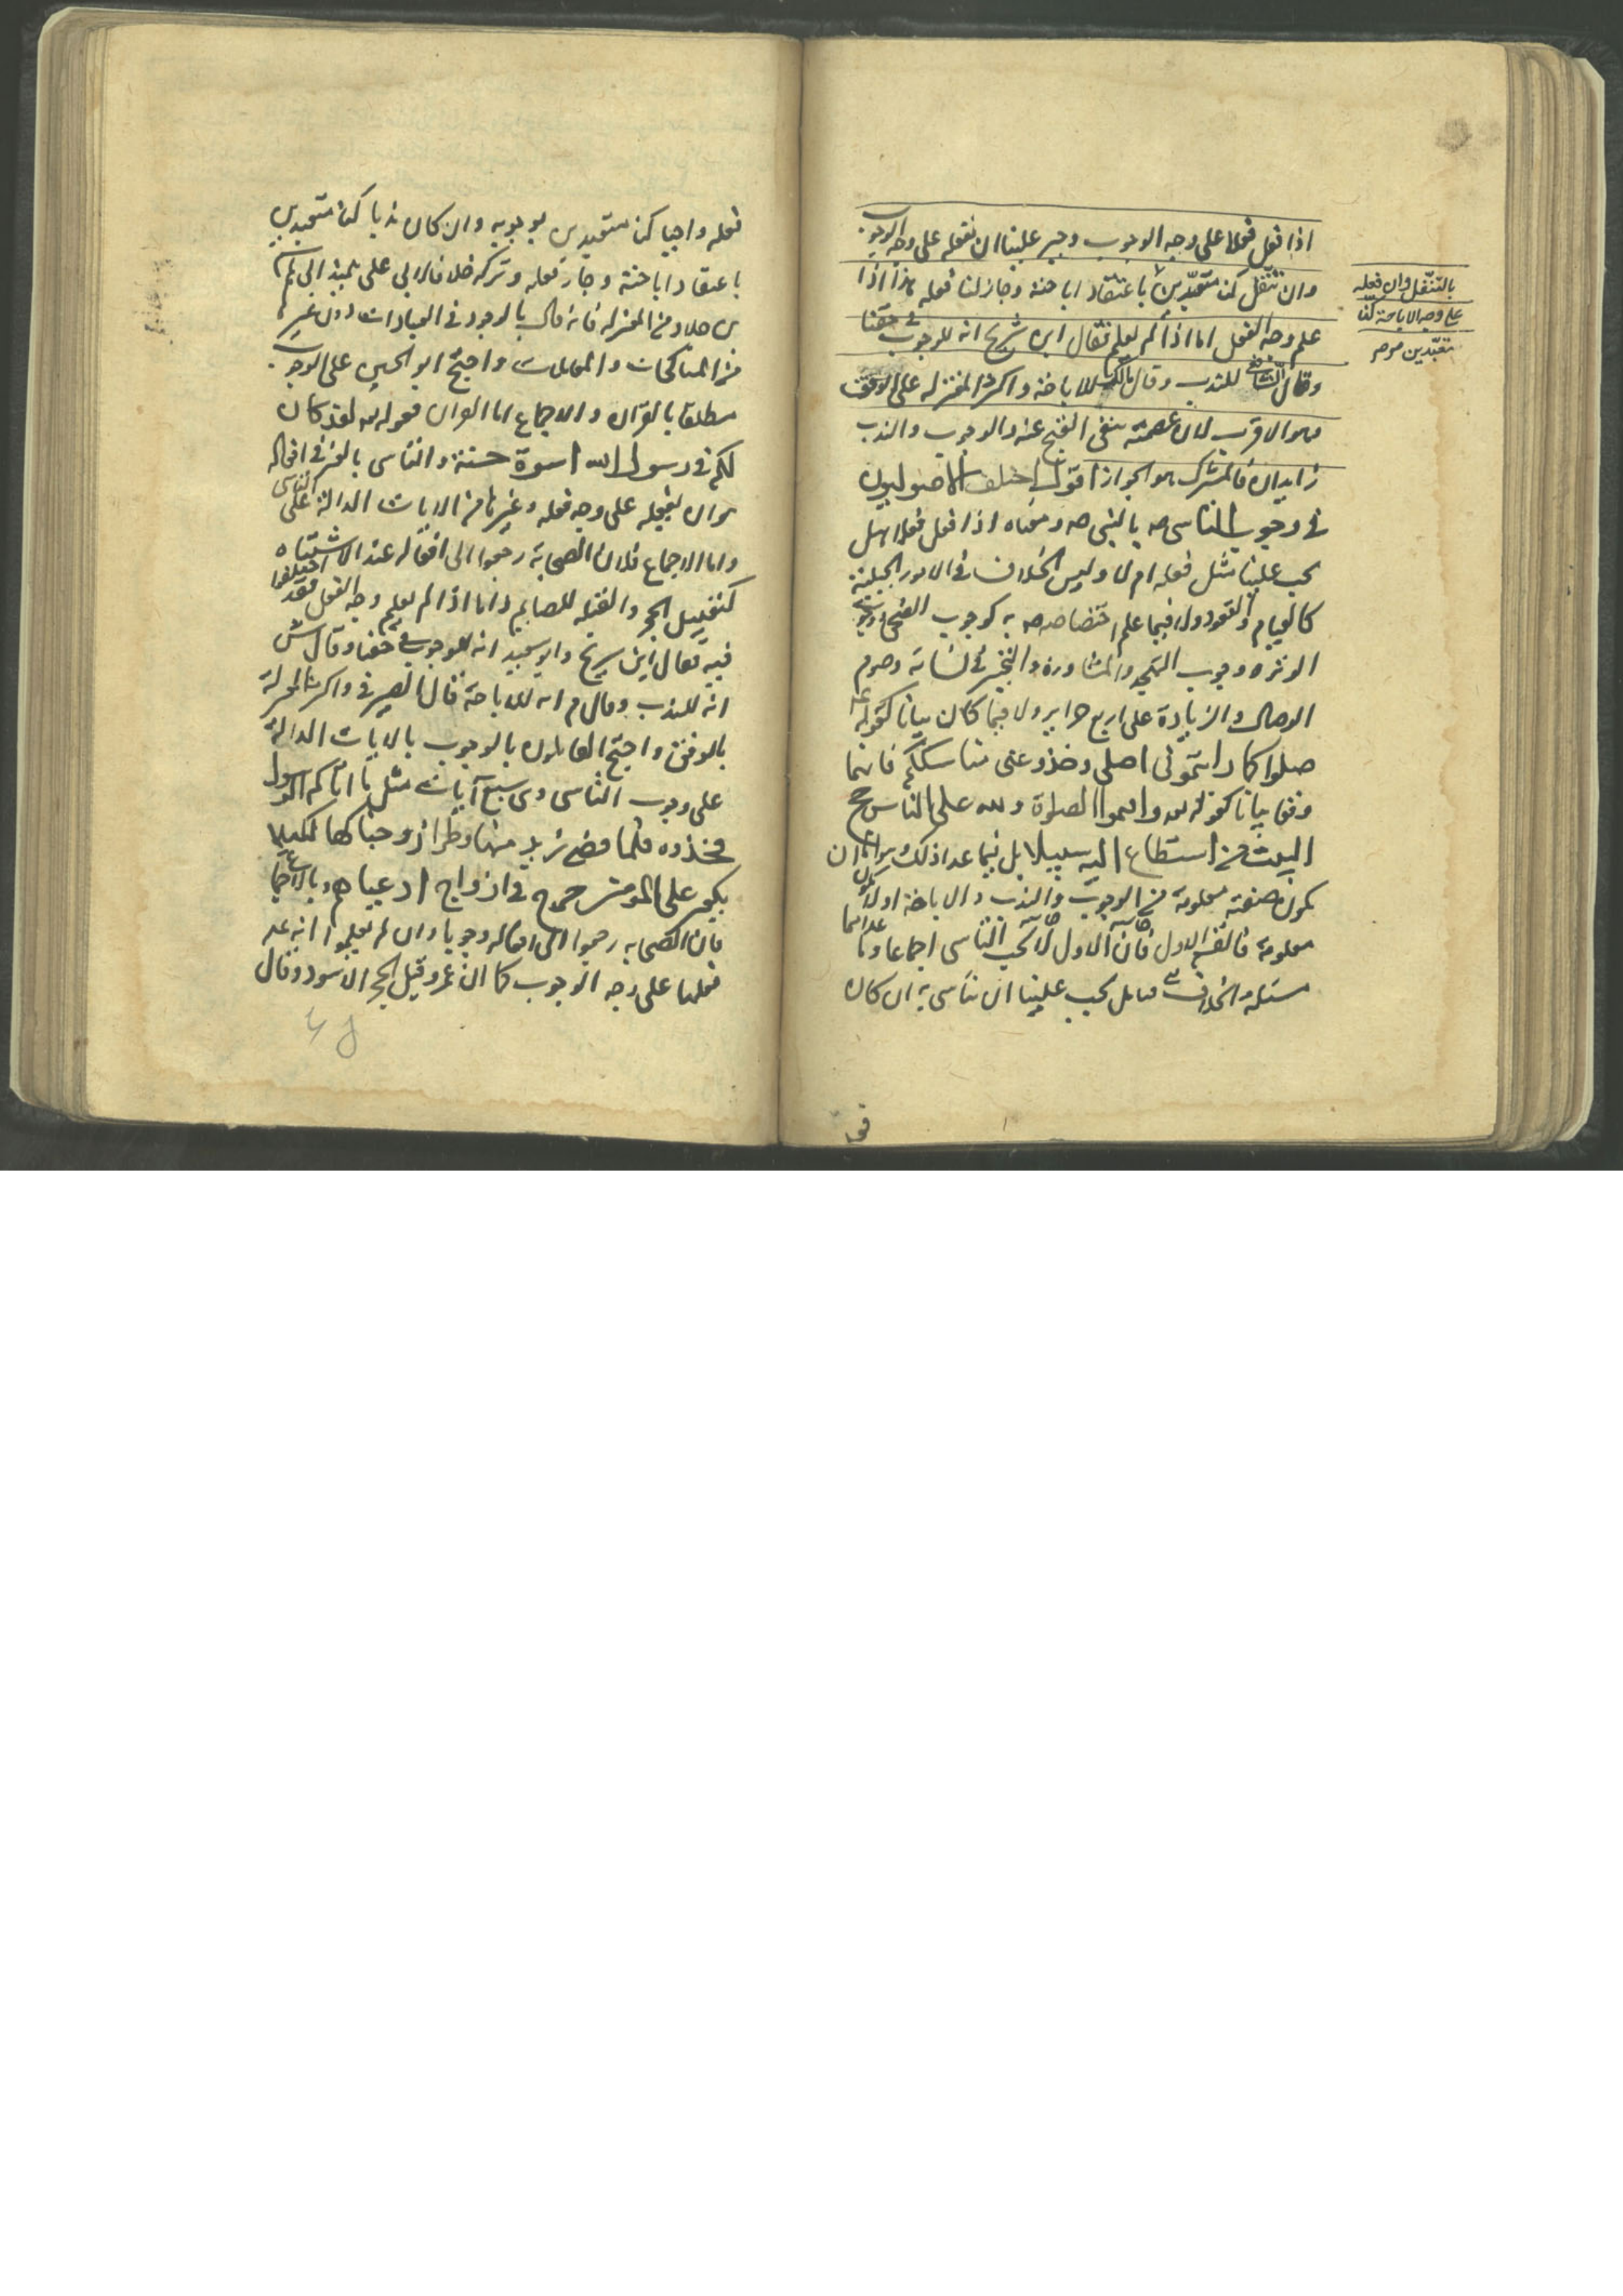 اذا فعل فعلا على وجه الوجوب وجب علينا ان نفعله على وجه الوجوب
وان تنفل كنا متعبدين باعتقاد اباحته وجاز لنا فعله هذا اذا
علم وجه الفعل اما اذا لم يعلم فقال ابن شريح انه للوجوب في حقنا
وقال الشافعي للندب وقال مالك للاباحة واكثر المعتزله على الوقف
وهو الاقرب لان عصمته تنفي القبح عنه والوجوب والندب
زايدان فالمشترك هو الجواز اقول اختلف الاصوليون
في وجوب التاسي به بالنبي صه ومعناه اذا فعل فعلا هل
يجب علينا مثل فعله ام لا وليس الخلاف في الامور الجبلية
كالقيام والقعود ولا فيما علم اختصاصه به كوجوب الضحى ووجوب
الوتر ووجوب التهجد والمشاورة والتخير في نسائه وصوم
الوصال والزيادة على اربع حراير ولا فيما كان بيانا كقوله ع
صلوا كما رايتموني اصلي وخذو عني مناسككم فانهما
وقعا بيانا كقوله تعه واقيموا الصلوة ولله على الناس حج
البيت من استطاع اليه سبيلا بل فيما عدا ذلك وهو اما ان
يكون صفته معلومة من الوجوب والندب والاباحة او لا يكون
معلومة فالقسم الاول فان الاول لا يجب التاسي اجماعا وما عداهما
مسئلة الخلاف فقايل يجب علينا ان نتاسى به ان كان
بالتنفل وان فعله
على وجه الاباحة كنا
متعبدين صح
فعله واجبا كنا متعبدين بوجوبه وان كان ندبا كنا متعبدين
باعتقاد اباحته وجاز فعله وتركه خلافا لابي على تلميذ ابي هاشم
بن خلاد من المعتزله فانه قال بالوجوب في العبادات دون غيرها
من المناكحات والمعاملات واحتج ابو الحسين على الوجوب
مطلقا بالقران والاجماع اما القران فقوله تعه لقد كان
لكم في رسول الله اسوة حسنة والتاسي بالغير في افعاله
هو ان يفعله على وجه فعله وغيرها من الايات الدالة على التاسي
واما الاجماع فلان الصحابة رجعوا الى افعاله عند الاشتباه
كتقبيل الحجر والقبلة للصايم واما اذا لم يعلم وجه الفعل فقد اختلفوا
فيه فقال ابن سريج وابو سعيد انه للوجوب في حقنا وقال ش
انه للندب وقال م انه للاباحة قال الصيرفي واكثر المعتزلة
بالوقف واحتج القايلون بالوجوب بالايات الدالة
على وجوب التاسي وهي سبع آيات مثل ما اتاكم الرسول
فخذوه فلما قضى زيد منها وطرا زوجناكها لكيلا
يكون على المؤمنين حرج في ازواج ادعيائهم وبالاجماع
فان الصحابه رجعوا الى افعاله وجوبا وان لم يعلموا انه عه
فعلها على وجه الوجوب كما ان عمر قبل الحجر الاسود وقال